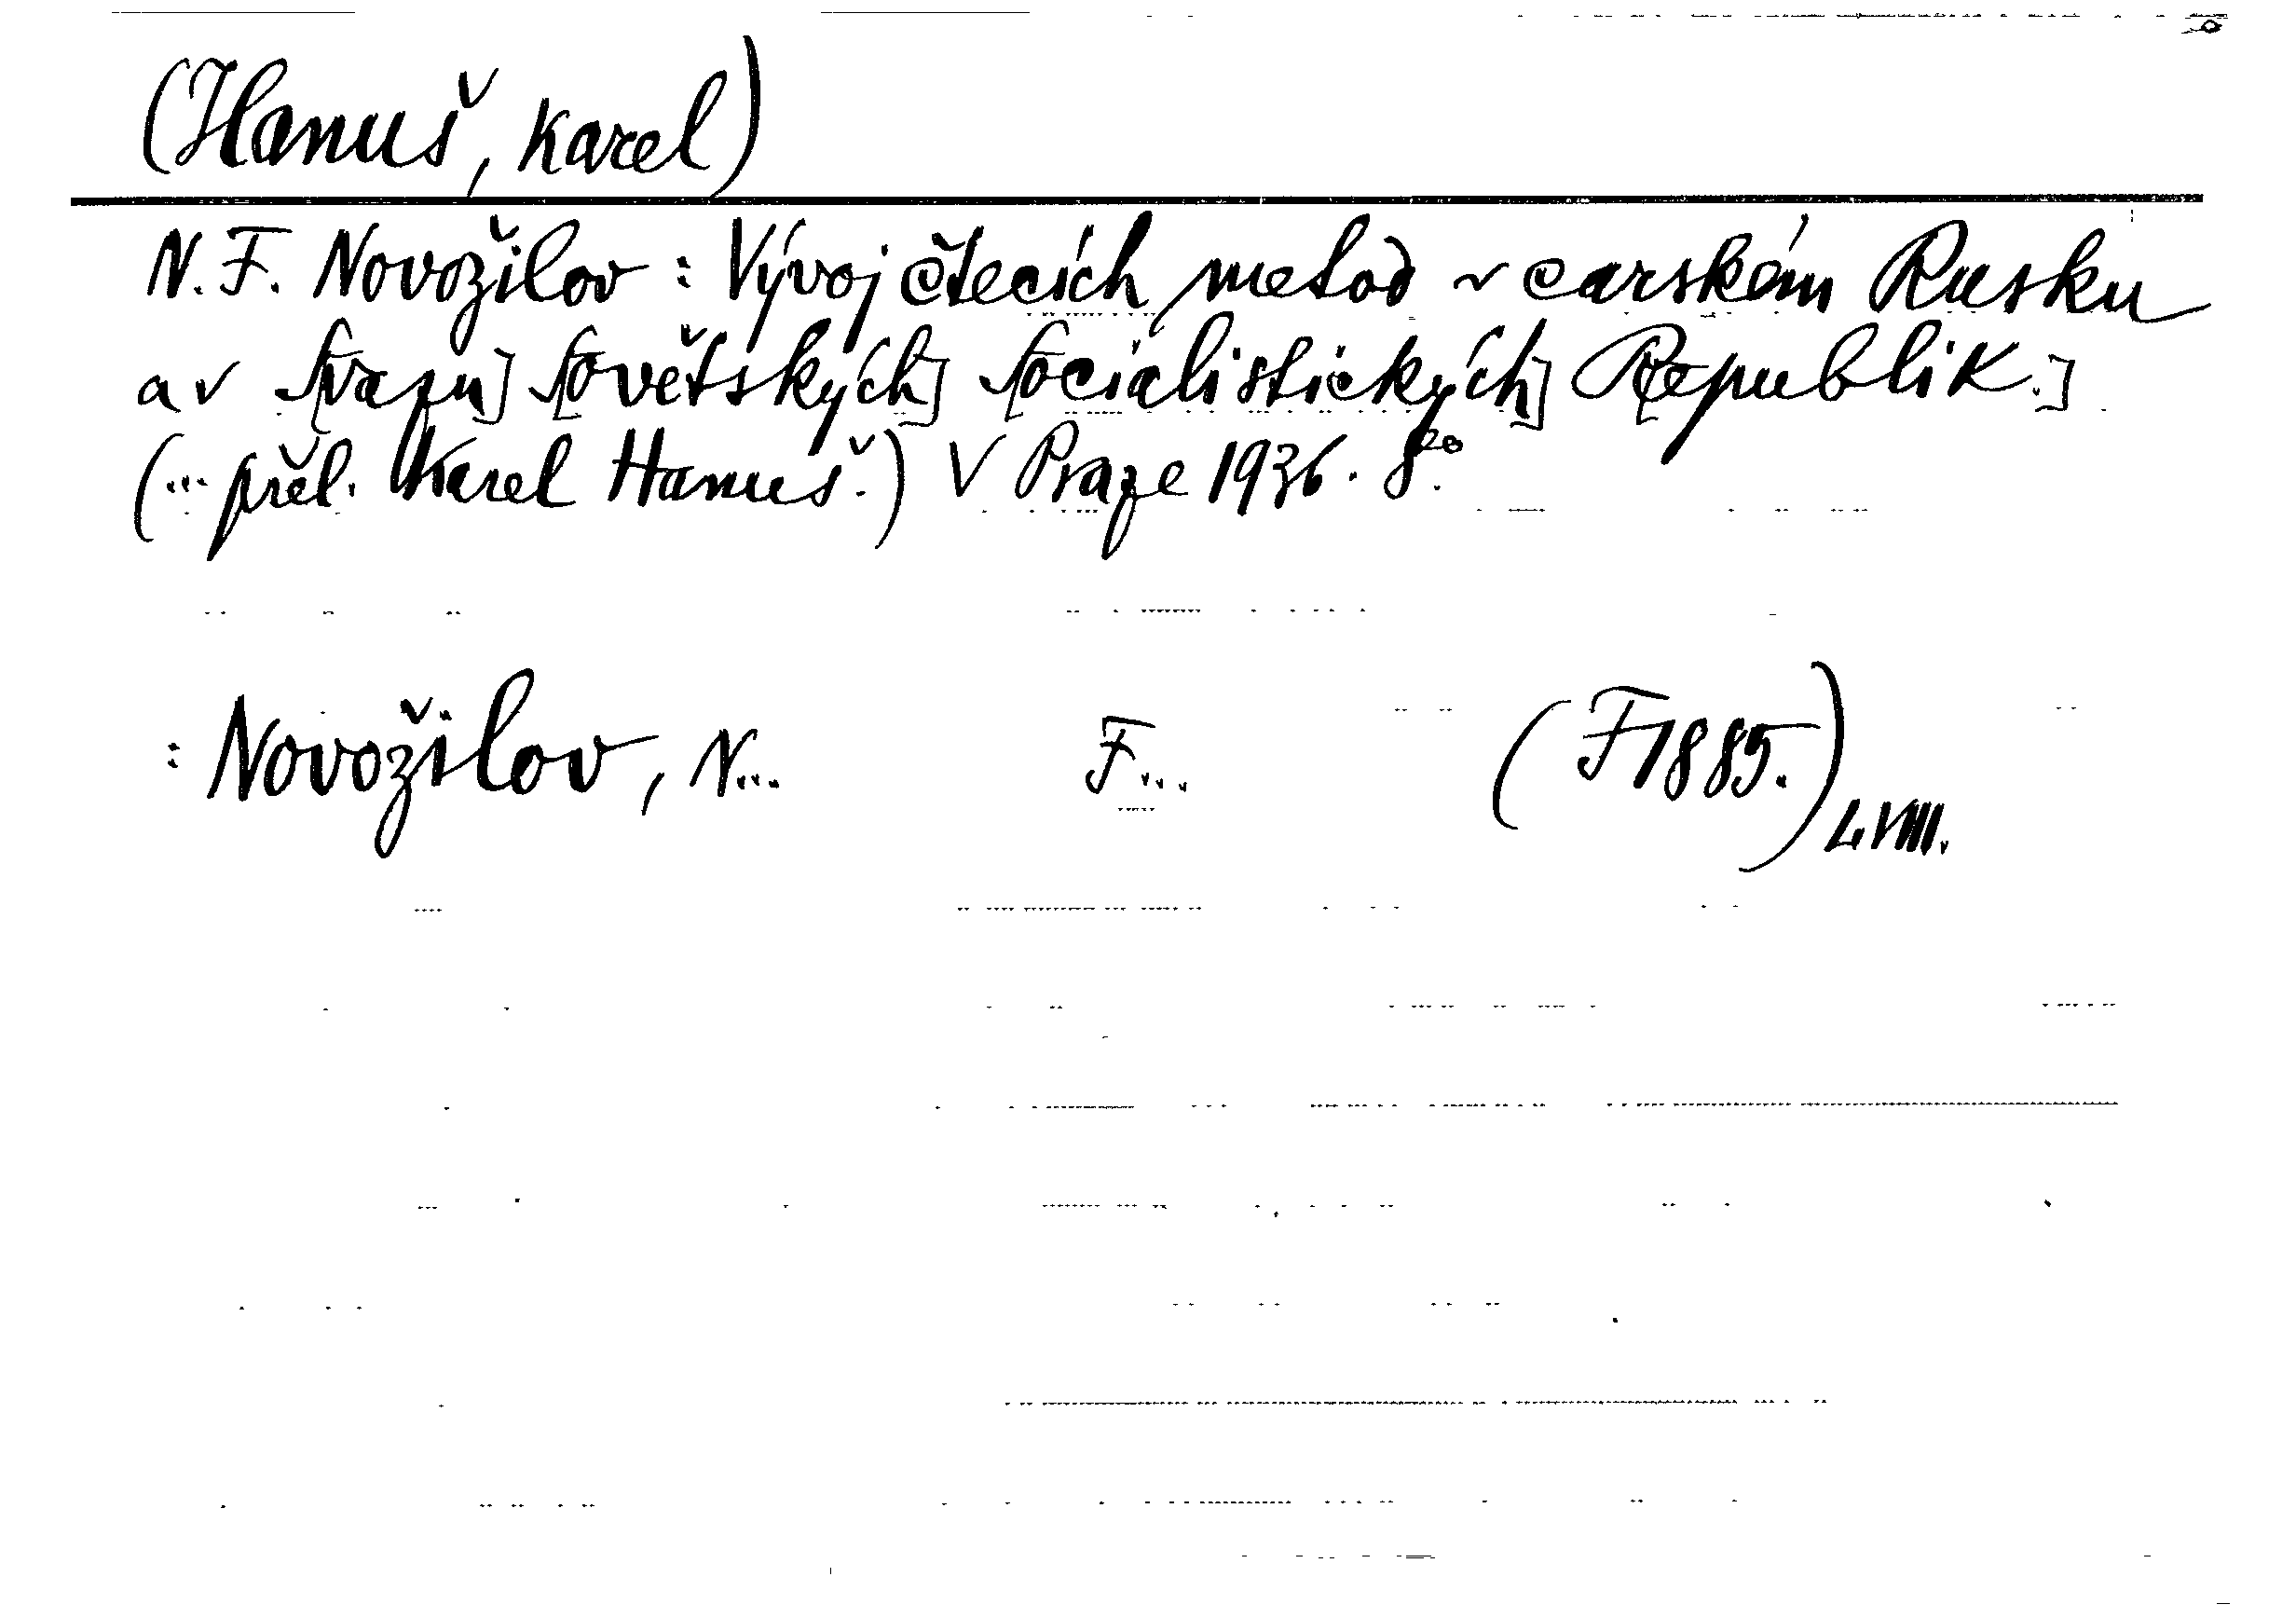 (Hanuš, Karel)
N. F. Novožilov : Vývoj čtecích metod v carském Rusku
a v S[vazu] S[ovětských] S[ocialistických] R[epublik.]
(... přel. Karel Hanuš.) V Praze 1936. 8°.
: Novožilov, N... F... (F 1885.)
L. VIII.